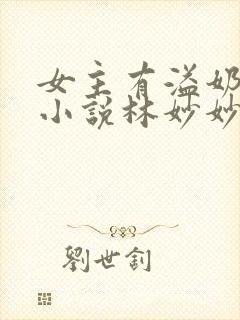 女主有溢奶
小說林妙妙
劉世釗